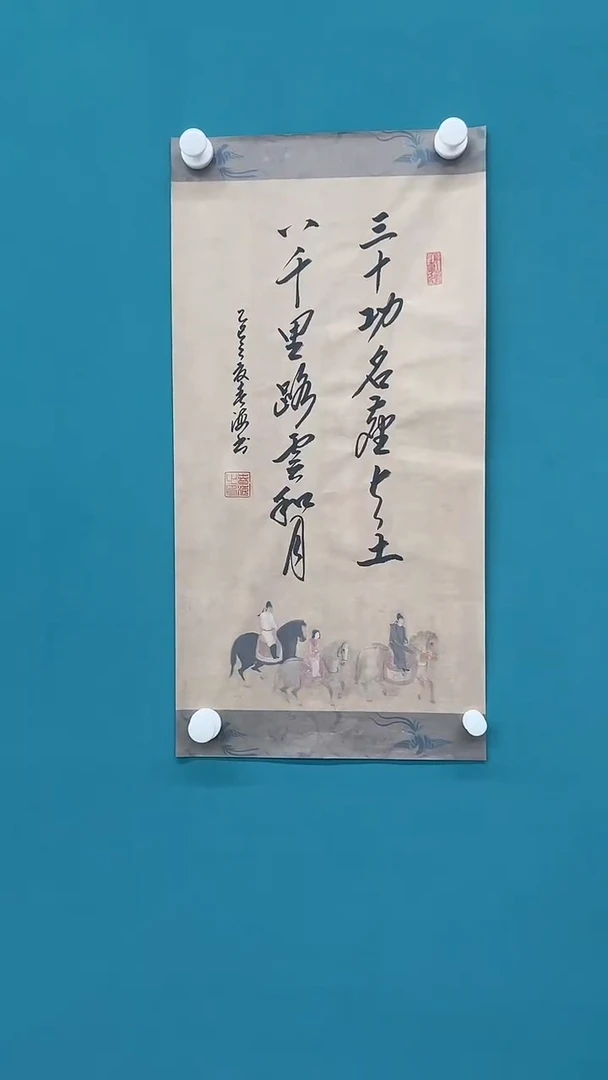 三十功名塵与土
八千里路雲和月
乙巳之夏春海书